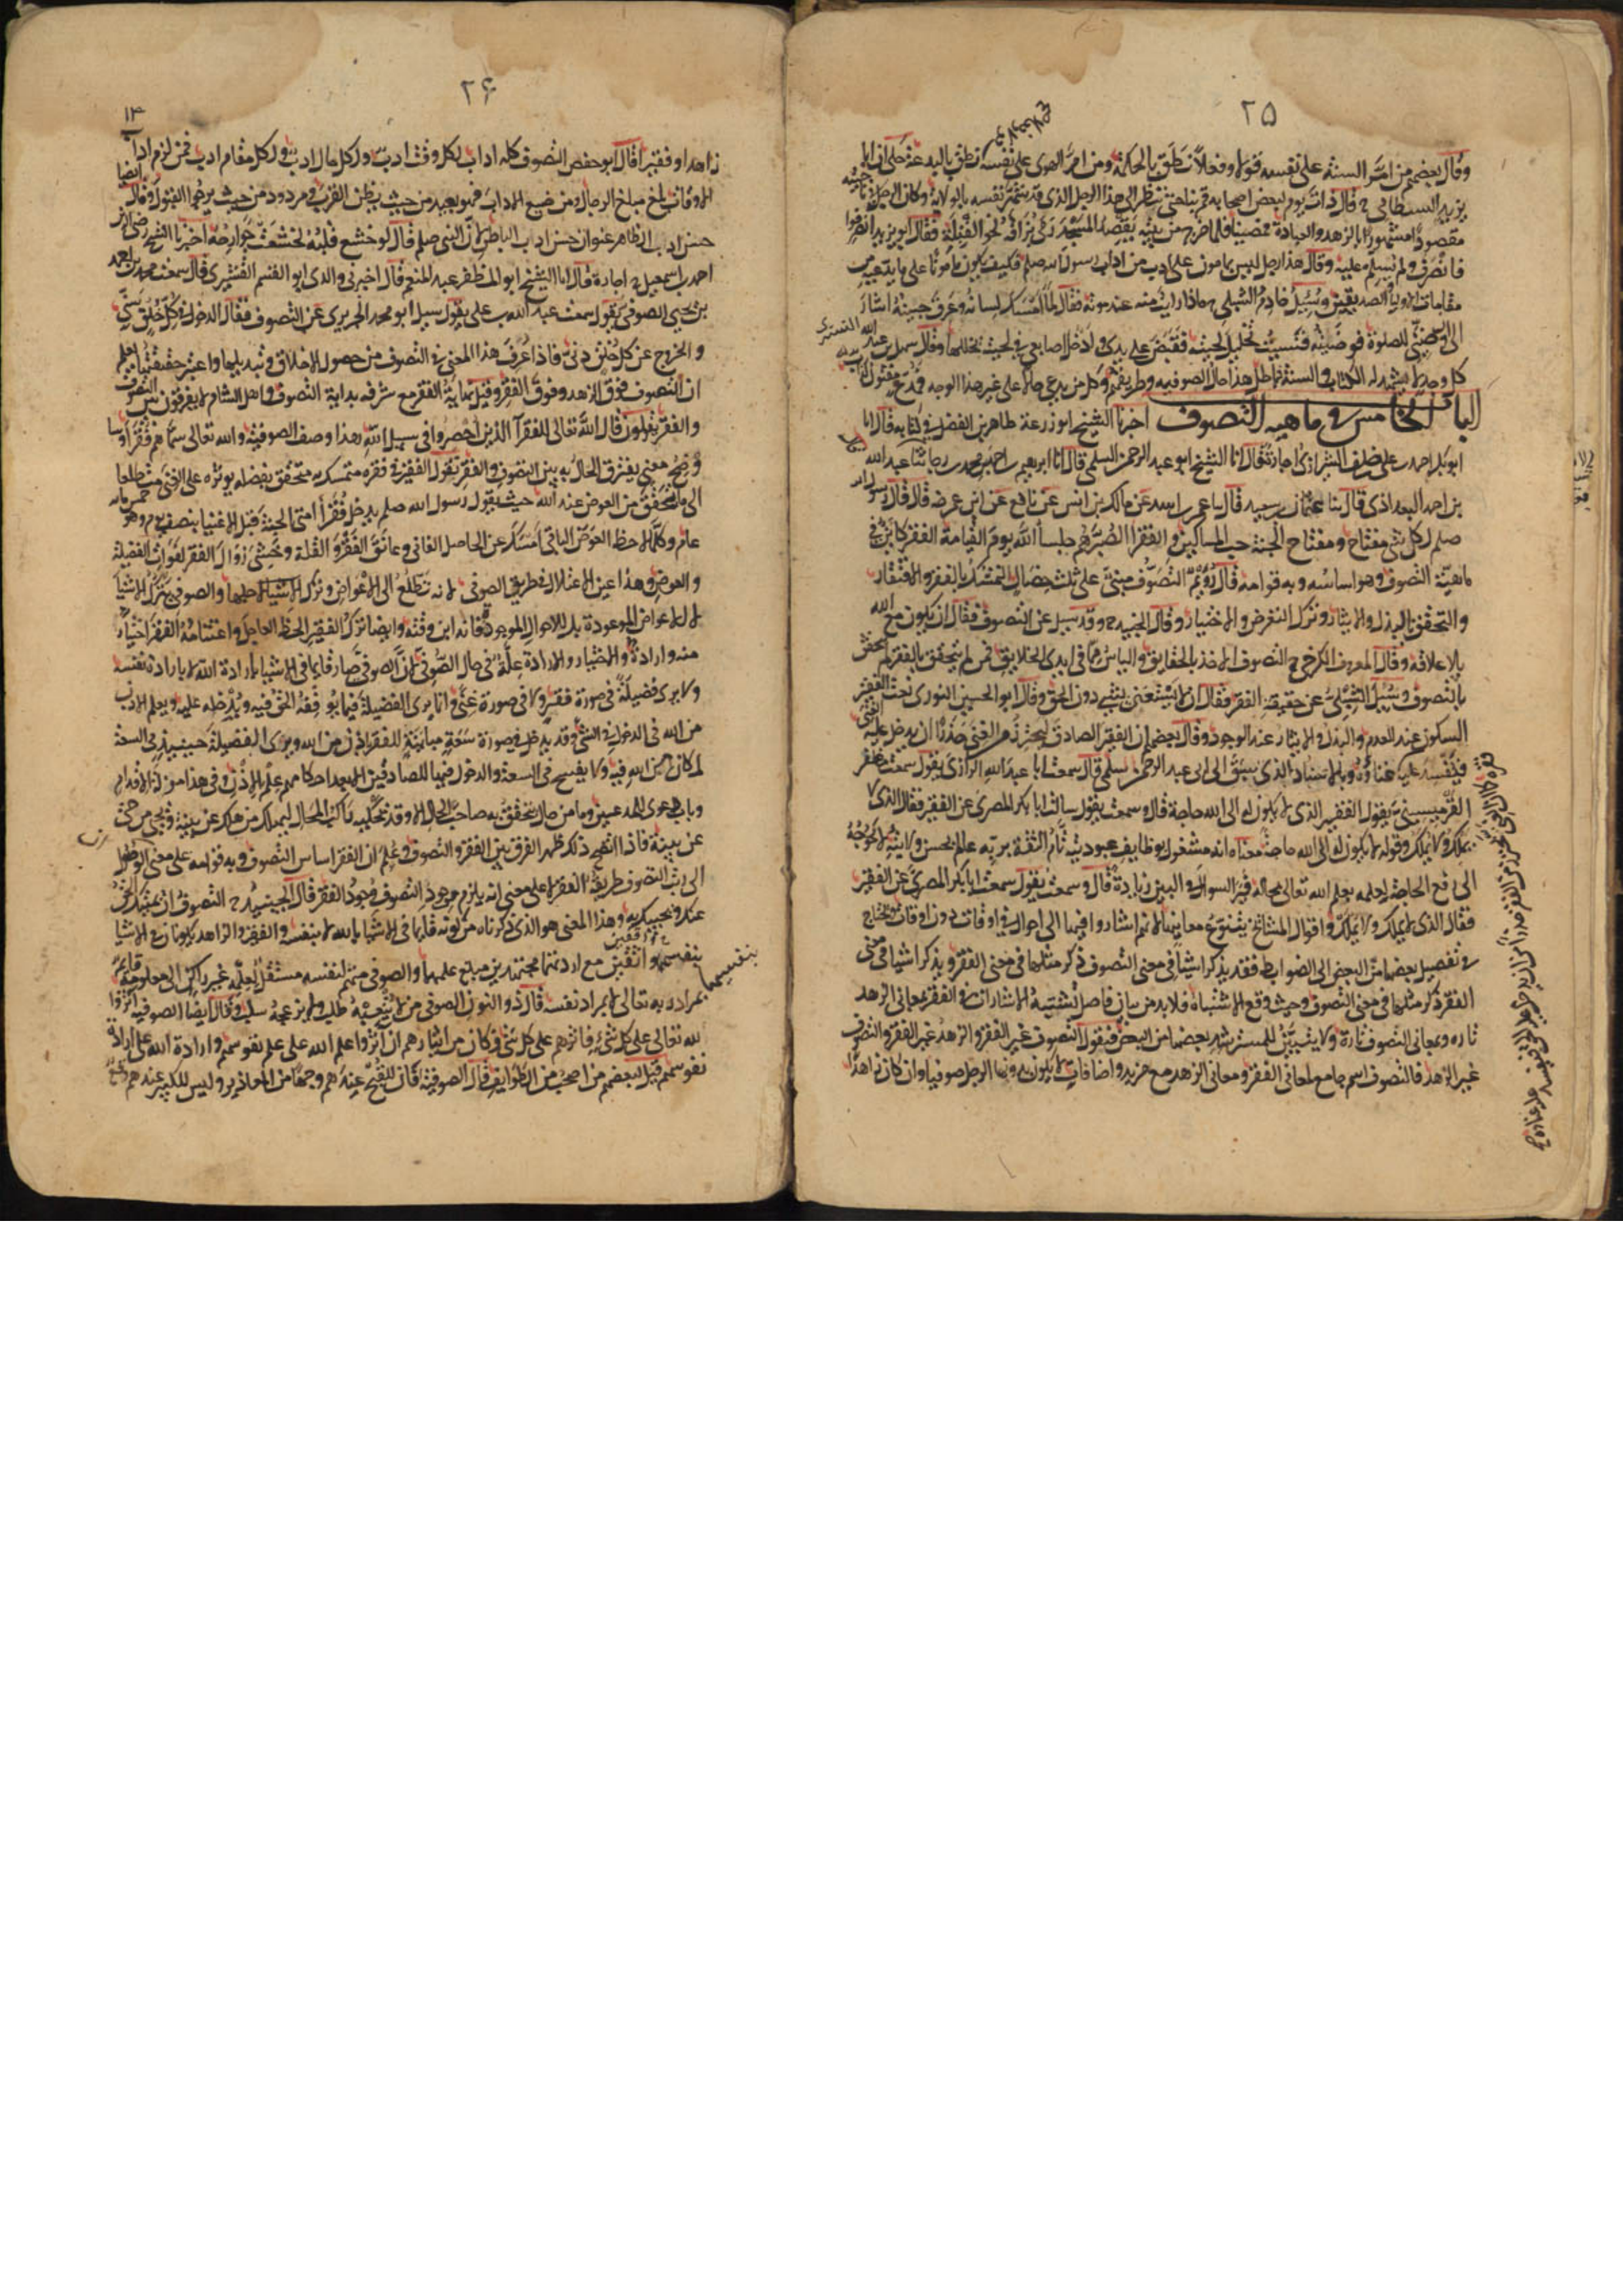 ٢٥
وقال بعضهم من امّر السنة على نفسه قولا وفعلاً نطق بالحكمة ومن امّر الهوى على نفسه نطق بالبدعة حكى ان ابا
يزيد البسطامي قال ذات يوم لبعض اصحابه قم بنا حتى ننظر الى هذا الرجل الذي قد شهر نفسه بالولاية وكان الرجل في ناحيته
مقصودا مشهورا بالزهد والعبادة فمضينا فلما خرج من بيته يقصد المسجد رمى بزاقه نحو القبلة فقال ابو يزيد انصرفوا
فانصرف ولم يسلم عليه وقال هذا رجل ليس بمامون على ادب من اداب رسول الله صلعم فكيف يكون مأمونا على ما يدعيه من
مقامات الاوليا والصديقين وسئل خادم الشبلي ماذا رايت منه عند موته فقال لما امسك لسانه وعرق جبينه اشار
الى ان وضئني للصلوة فوضيته فنسيت تخليل لحيته فقبض على يدى وادخل اصابعى في لحيته يخللها وقال سهل بن عبد الله التسترى
كل وجد لا يشهد له الكتاب والسنة فباطل هذا حال الصوفيه وطريقهم وكل من يدعى حالا على غير هذا الوجه فمدع مفتون كذاب
الباب الخامس في ماهية التصوف اخبرنا الشيخ ابو زرعة طاهر بن الفضل في كتابه قال انا
ابو بكر احمد بن على بن خلف الشيرازى اجازة قال انا الشيخ ابو عبد الرحمن السلمي قال انا ابرهيم بن احمد بن محمد بن رجا ثنا عبد الله
بن احمد البغداذى قال ثنا عثمان بن سعيد قال ثنا عمر بن اسد عن مالك بن انس عن نافع عن ابن عمر رضه قال قال رسول الله
صلعم لكل شي مفتاح ومفتاح الجنة حب المساكين والفقرا الصبر هم جلساء الله يوم القيامة الفقر كاين في
ماهية التصوف وهو اساسه وبه قوامه قال رويم التصوف مبني على ثلث خصال التمسك بالفقر والافتقار
والتحقق بالبذل والايثار وترك التعرض والاختيار وقال الجنيد وقد سيل عن التصوف فقال ان يكون مع الله
بلا علاقة وقال المعروف الكرخي التصوف الاخذ بالحقايق والياس مما في ايدى الخلايق فمن لم يتحقق بالفقر لم يتحقق
بالتصوف وسئل الشبلي عن حقيقة الفقر فقال ان لا يستغني بشي دون الحق وقال ابو الحسين النورى نعت الفقير
السكون عند العدم والبذل والايثار عند الوجود وقال بعضهم ان الفقير الصادق ليحترز من الغنى حذرا ان يدخل عليه الغنى
فيفسد عليه فقره وبالاسناد الذي سبق الى ابى عبد الرحمن سلمي قال سمعت ابا عبد الله الرازى يقول سمعت مظفر
القرميسيني يقول الفقير الذي لا يكون له الى الله حاجة قال وسمعته يقول سالت ابا بكر المصرى عن الفقير فقال الذى لا
يملك ولا يملك وقوله لا يكون له الى الله حاجة معناه انه مشغول بوظايف عبوديته تام الثقة بربه عالم بحسن كلايته لا يحوجه
الى رفع الحاجة لعلمه بعلم الله تعالى بحاله فيرى السوال في البين زيادة قال وسمعته يقول سمعت ابا بكر المصرى عن الفقير
فقال الذى لا يملك ولا يملك واقوال المشايخ تتنوع معانيها لانهم اشاروا فيها الى احوال في اوقات دون اوقات ونحتاج
في تفصيل بعضها من البعض الى الضوابط فقد يذكر اشيا في معنى التصوف ذكر مثلها في معنى الفقر ويذكر اشيا في معنى
الفقر ذكر مثلها في معنى التصوف وحيث وقع الاشتباه فلا بد من بيان فاصل تشتبه الاشارات في الفقر بمعاني الزهد
تارة وبمعاني التصوف تارة ولا يتبين للمسترشد بعضها من البعض فنقول التصوف غير الفقر والزهد غير الفقر والتصوف
غير الزهد فالتصوف اسم جامع لمعاني الفقر ومعاني الزهد مع مزيد واضافات لا يكون بدونها الرجل صوفيا وان كان زاهدا
٢۶
١٣
زاهدا وفقيرا قال ابو حفص التصوف كله اداب لكل وقت ادب ولكل حال ادب ولكل مقام ادب فمن لزم اداب
الاوقات بلغ مبلغ الرجال ومن ضيع الاداب فهو بعيد من حيث يظن القرب ومردود من حيث يرجوا القبول وقال ايضا
حسن ادب الظاهر عنوان حسن ادب الباطن لان النبي صلعم قال لو خشع قلبه لخشعت جوارحه اخبرنا الشيخ رضى الدين
احمد بن اسمعيل اجازة قال انا الشيخ ابو المظفر عبد المنعم قال اخبرني والدى ابو القسم القشيرى قال سمعت محمد بن احمد
بن يحيى الصوفى يقول سمعت عبد الله بن على يقول سيل ابو محمد الجريرى عن التصوف فقال الدخول في كل خلق سني
والخروج عن كل خلق دني فاذا عرف هذا المعنى في التصوف من حصول الاخلاق وتبديلها واعتبر حقيقته يعلم
ان التصوف فوق الزهد وفوق الفقر وقيل نهاية الفقر مع شرفه بداية التصوف واهل الشام لا يفرقون بين التصوف
والفقر يقولون قال الله تعالى للفقرآ الذين احصروا في سبيل الله هذا وصف الصوفية والله تعالى سماهم فقرا وسا
وضح معنى يفترق الحال به بين التصوف والفقر نقول الفقير في فقره متمسك به متحقق بفضله يوثره على الغنى متطلعا
الى ما تحقق من العوض عند الله حيث يقول رسول الله صلعم يدخل فقرا امتى الجنة قبل الاغنيا بنصف يوم وهو خمس ماية
عام وكلما لاحظ العوض الباقى امسك عن الحاصل الفاني وعانق الفقر والقلة وخشى زوال الفقر لفوات الفضيلة
والعوض وهذا عين الاعتلال في طريق الصوفي لانه تطلع الى الاعواض وترك الاشيا لاجلها والصوفي يترك الاشيا
لا للاعواض الموعودة بل للاحوال الموجودة فانه ابن وقته وايضا ترك الفقير الحظ العاجل واغتنامه الفقر اختيار
منه وارادة والاختيار والارادة علة في حال الصوفي لان الصوفي صار قايما في الاشيا بارادة الله لا بارادة نفسه
ولا يرى فضيلة في صورة فقر ولا في صورة غنى وانما يرى الفضيلة فيما يوقفه الحق فيه ويدخله عليه ويعلم الاذن
من الله في الدخول في الشي وقد يدخل في صورة سعة مباينة للفقر باذن من الله ويرى الفضيلة حينيذ في السعة
لمكان الاذن من الله فيه ولا يفسح في السعة والدخول فيها للصادقين الا بعد احكامهم علم الاذن وفي هذا مزلة الاقدام
وباب دعوى للمدعين وما من حال يتحقق به صاحب الحال الا وقد يحكيه راكب المحال ليهلك من هلك عن بينة ويحيى من حى
عن بينة فاذا اتضح ذلك ظهر الفرق بين الفقر والتصوف وعلم ان الفقر اساس التصوف وبه قوامه على معنى ان الوصول
الى رتب التصوف طريقه الفقر لا على معنى انه يلزم من وجود التصوف وجود الفقر قال الجنيد التصوف ان يميتك الحق
عنك ويحييك به وهذا المعنى هو الذي ذكرناه من كونه قايما في الاشيا بالله لا بنفسه والفقير والزاهد يكونان في الاشيا
بنفسهما واقفين مع ارادتهما مجتهدين مبلغ علمهما والصوفي متهم لنفسه مستقل لعلمه غير راكن الى معلومه قايم
بمراد ربه تعالى لا بمراد نفسه قال ذو النون الصوفي من لا يتعبه طلب ولا يزعجه سلب وقال ايضا الصوفية آثروا
الله تعالى على كل شئ فاثرهم على كل شئ فكان من ايثارهم ان آثروا علم الله على علم نفوسهم وارادة الله على ارادة
نفوسهم قيل لبعضهم من اصحب من الطوايف قال الصوفية فان للقبيح عندهم وجها من المعاذير وليس للكبير عندهم وقع